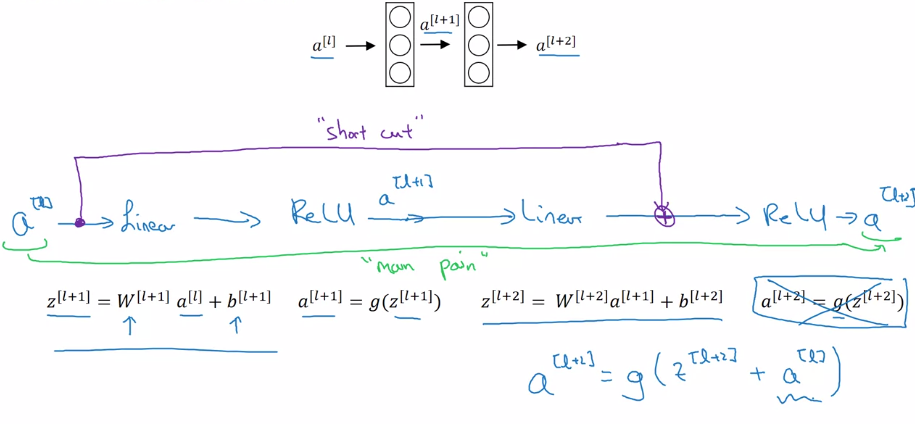 a^[l] → → a^[l+1] → a^[l+2]
"short cut"
a^[l] → Linear → ReLU a^[l+1] → Linear → ⊕ → ReLU → a^[l+2]
"main pain"
z^[l+1] = W^[l+1] a^[l] + b^[l+1] a^[l+1] = g(z^[l+1]) z^[l+2] = W^[l+2]a^[l+1] + b^[l+2] a^[l+2] = g(z^[l+2])
a^[l+2] = g(z^[l+2] + a^[l])